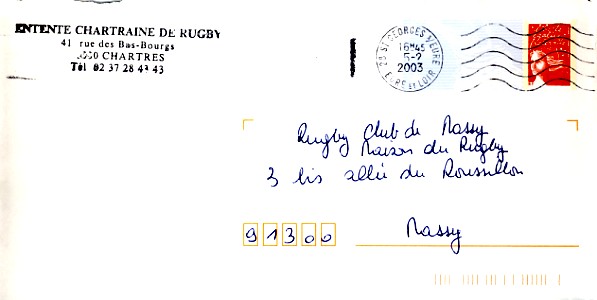 ENTENTE CHARTRAINE DE RUGBY
41 rue des Bas-Bourgs
000 CHARTRES
Tél 02 37 28 43 43
28 ST GEORGES S/EURE
16H45
5-2
2003
EURE ET LOIR
Rugby Club de Massy
Maison du Rugby
3 bis allée du Roussillon
91300 Massy